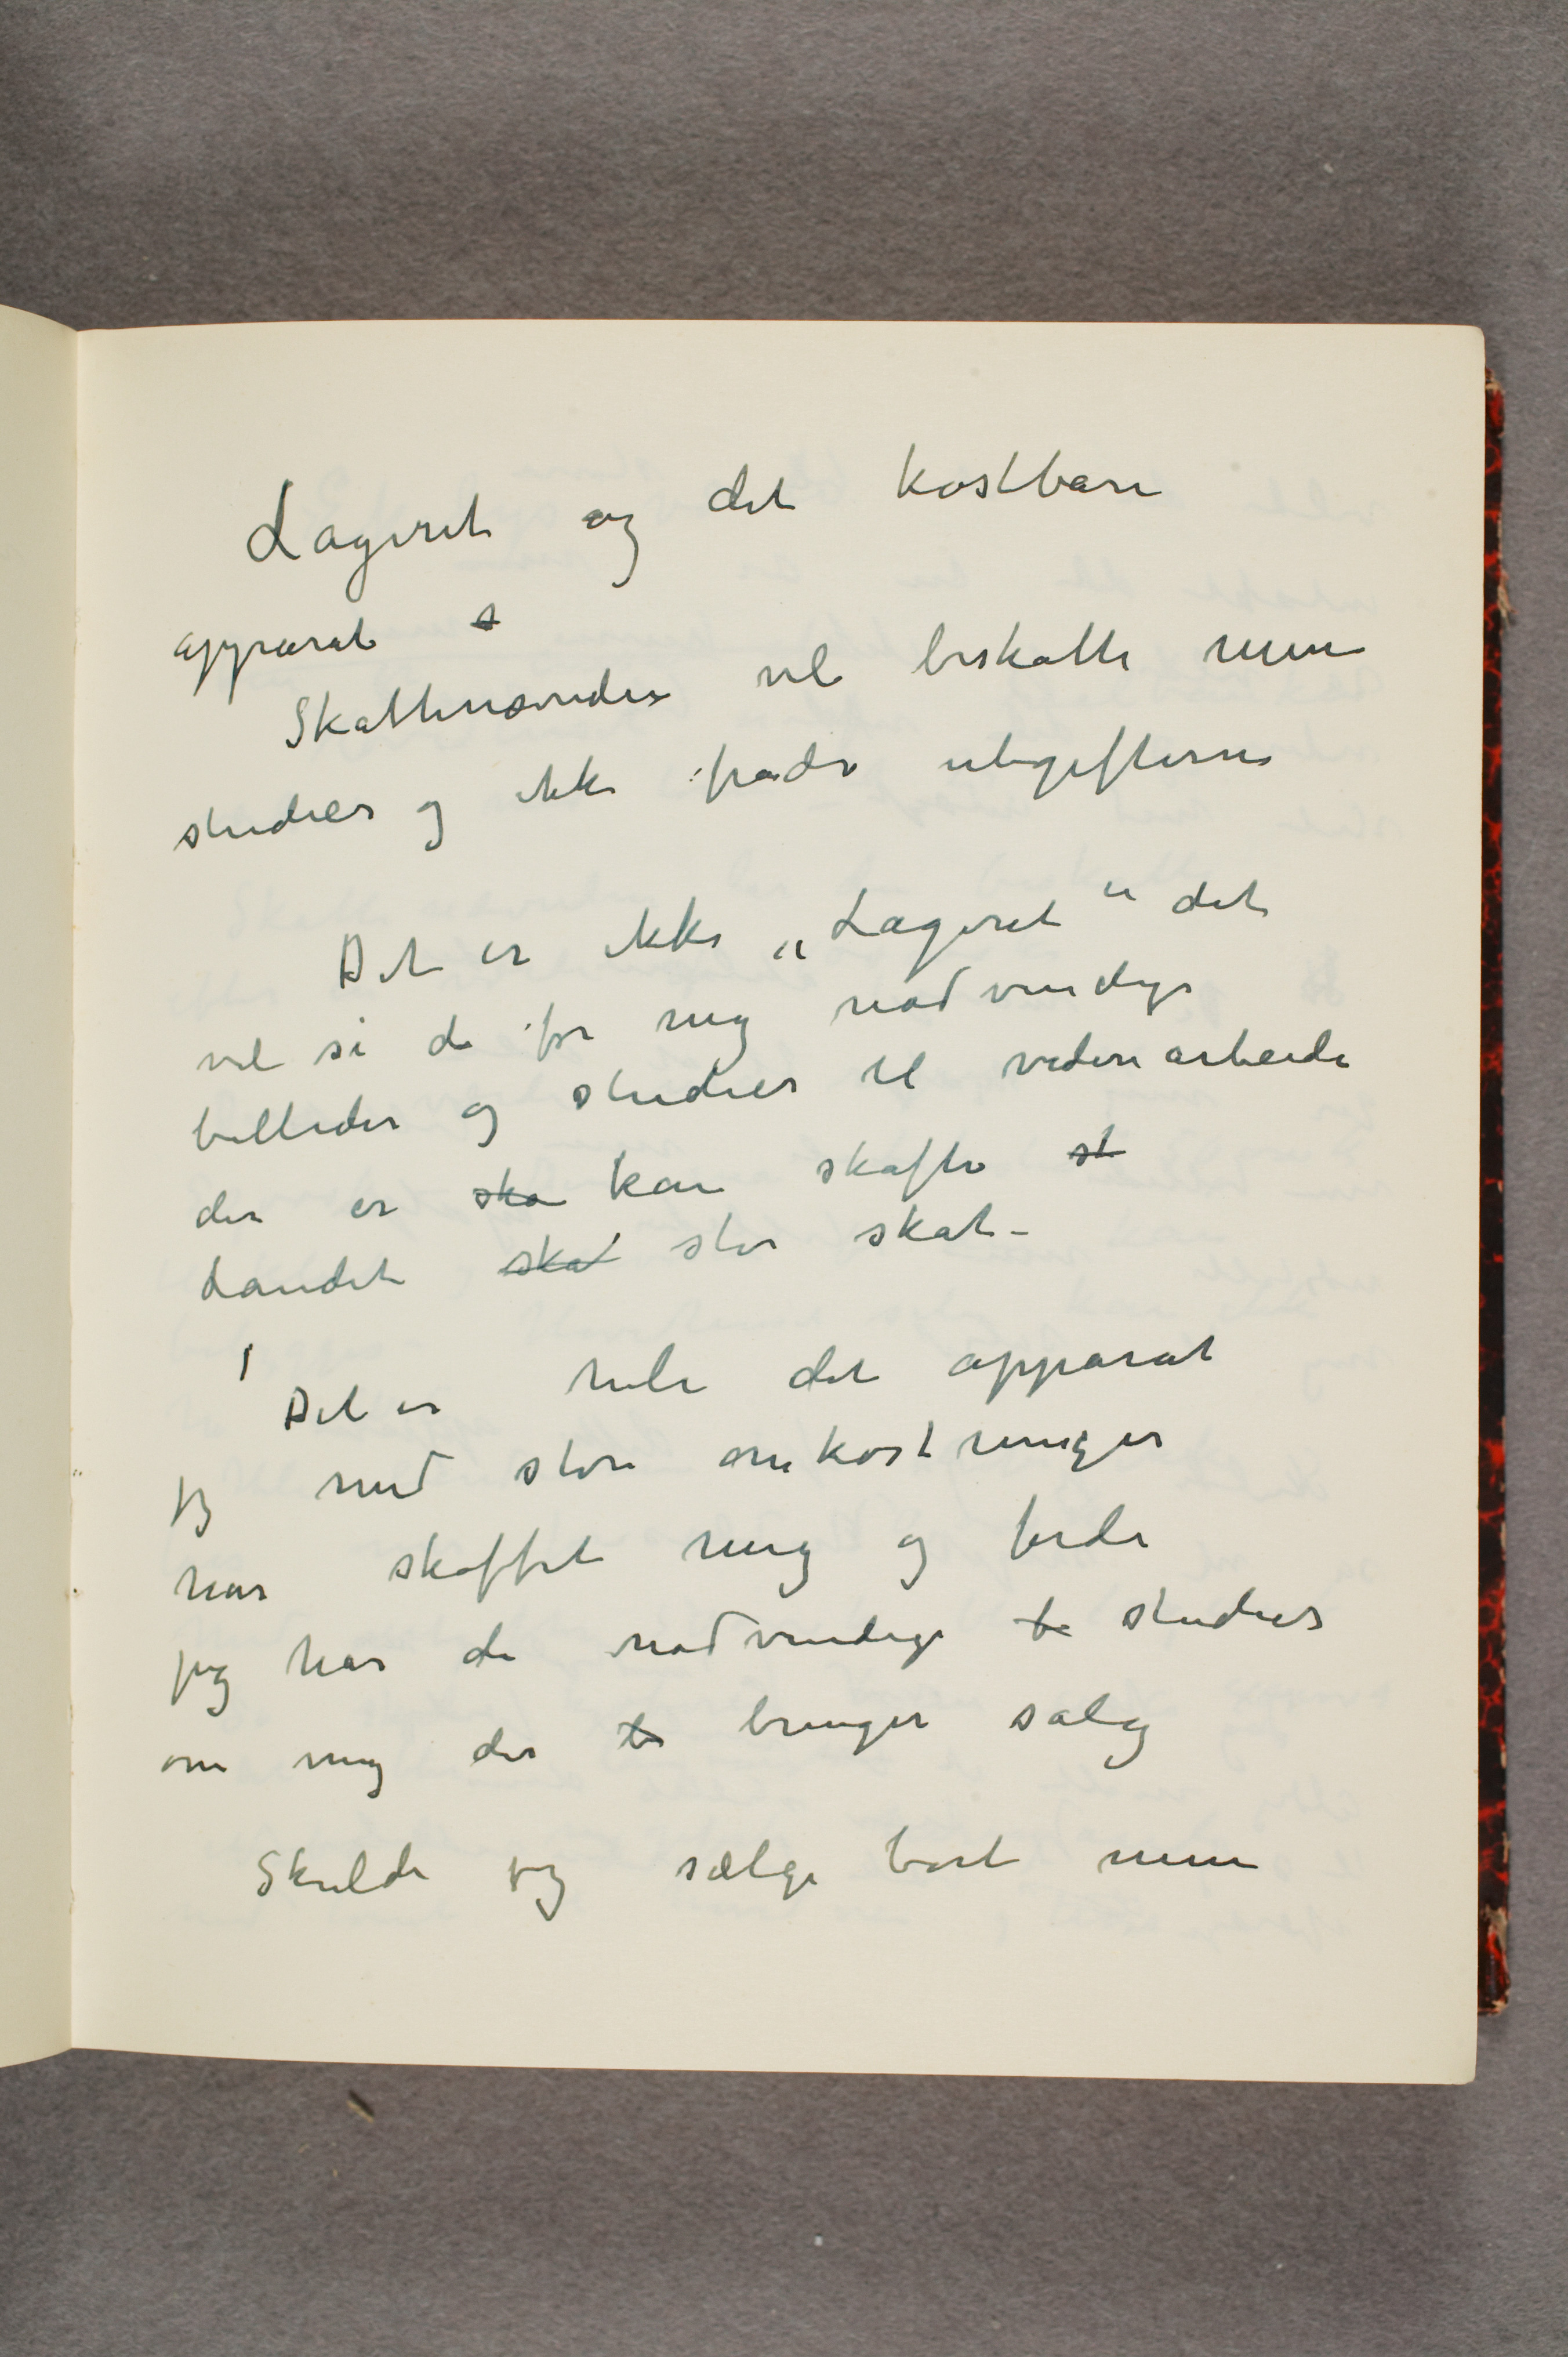 Lageret og det kostbare
apparat s
Skattenævnden vil beskatte mine
studier og ikke fradra utgifterne
Det er ikke „Lageret" det
vil si de for mig nødvendige
billeder og studier til videre arbeide
der er ska kan skaffe st
Landet skat stor skat –
Det er hele det apparat
jeg med store omkostninger
har skaffet mig og fordi
jeg har de nødvendige b studier
om mig der b bringer salg
Skulde jeg sælge bort mine